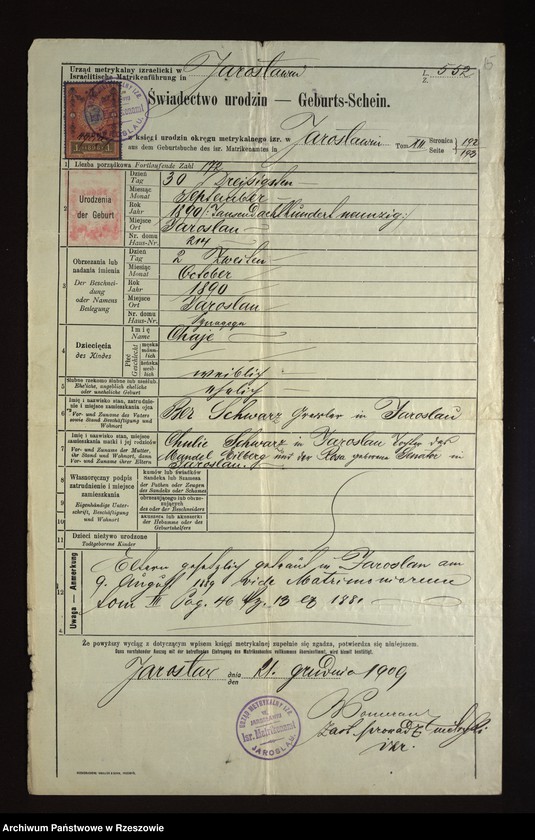 Urząd metrykalny izraelicki w
Israelitische Matrikenführung in
Jarosławiu
L.
Z. 552
Świadectwo urodzin — Geburts-Schein.
z księgi urodzin okręgu metrykalnego izr. w
aus dem Geburtsbuche des isr. Matrikenamtes in
Jarosławiu Tom III Stronica 192
Seite 193
1 Liczba porządkowa Fortlaufende Zahl 192
2 Urodzenia
der Geburt
Dzień
Tag 30 Dreißigsten
Miesiąc
Monat September
Rok
Jahr 1890 (: Tausendachthundert neunzig :)
Miejsce
Ort Jaroslau
Nr. domu
Haus-Nr. 204
3 Obrzezania lub
nadania imienia
Der Beschnei-
dung
oder Namens
Beilegung
Dzień
Tag 2 Zweiten
Miesiąc
Monat October
Rok
Jahr 1890
Miejsce
Ort Jaroslau
Nr. domu
Haus-Nr. Synagoga
4 Dziecięcia
des Kindes
Imię
Name Chaje
Płeć
Geschlecht
męska
männ-
lich
żeńska
weib-
lich weiblich
5 Ślubne rzekomo ślubne lub nieślub.
Eheliche, angeblich eheliche
oder uneheliche Geburt
ehelich
6 Imię i nazwisko stan, zatrudnie-
nie i miejsce zamieszkania ojca
Vor- und Zuname des Vaters
sowie Stand Beschäftigung und
Wohnort
Ber Schwarz in Jaroslau
7 Imię i nazwisko, stan, miejsce
zamieszkania matki i jej rodziców
Vor- und Zuname der Mutter,
ihr Stand und Wohnort, dann
Vor- und Zuname ihrer Eltern
Schwarz in Jaroslau Tochter des
Mendel Silberg und der Rosa geborene in
Jaroslau.
8 Własnoręczny podpis
zatrudnienie i miejsce
zamieszkania
9 Eigenhändige Unter-
schrift, Beschäftigung
und Wohnort
10
kumów lub świadków
Sandeka lub Szamesa
der Pathen oder Zeugen
des Sandeks oder Schames
obrzezającego lub obrze-
zających
des oder der Beschneiders
akuszera lub akuszerki
der Hebamme oder des
Geburtshelfers
11 Dzieci nieżywo urodzone
Todtgeborene Kinder
12 Uwaga — Anmerkung
Eltern gesetzlich getraut in Jaroslau am
9. August 1889 vide Matrimoniorum
tom III Pag. 46 13 ex 188
Że powyższy wyciąg z dotyczącym wpisem księgi metrykalnej zupełnie się zgadza, potwierdza się niniejszem.
Dass vorstehender Auszug mit der betreffenden Eintragung des Matrikenbuches vollkommen übereinstimmt, wird hiemit bestätigt.
Jarosław dnia
den 21. grudnia 1909
URZĄD METRYKALNY IZR.
w
JAROSŁAWIU
Isr. Matrikenamt
JAROSLAU.
metryki
izr.
Archiwum Państwowe w Rzeszowie